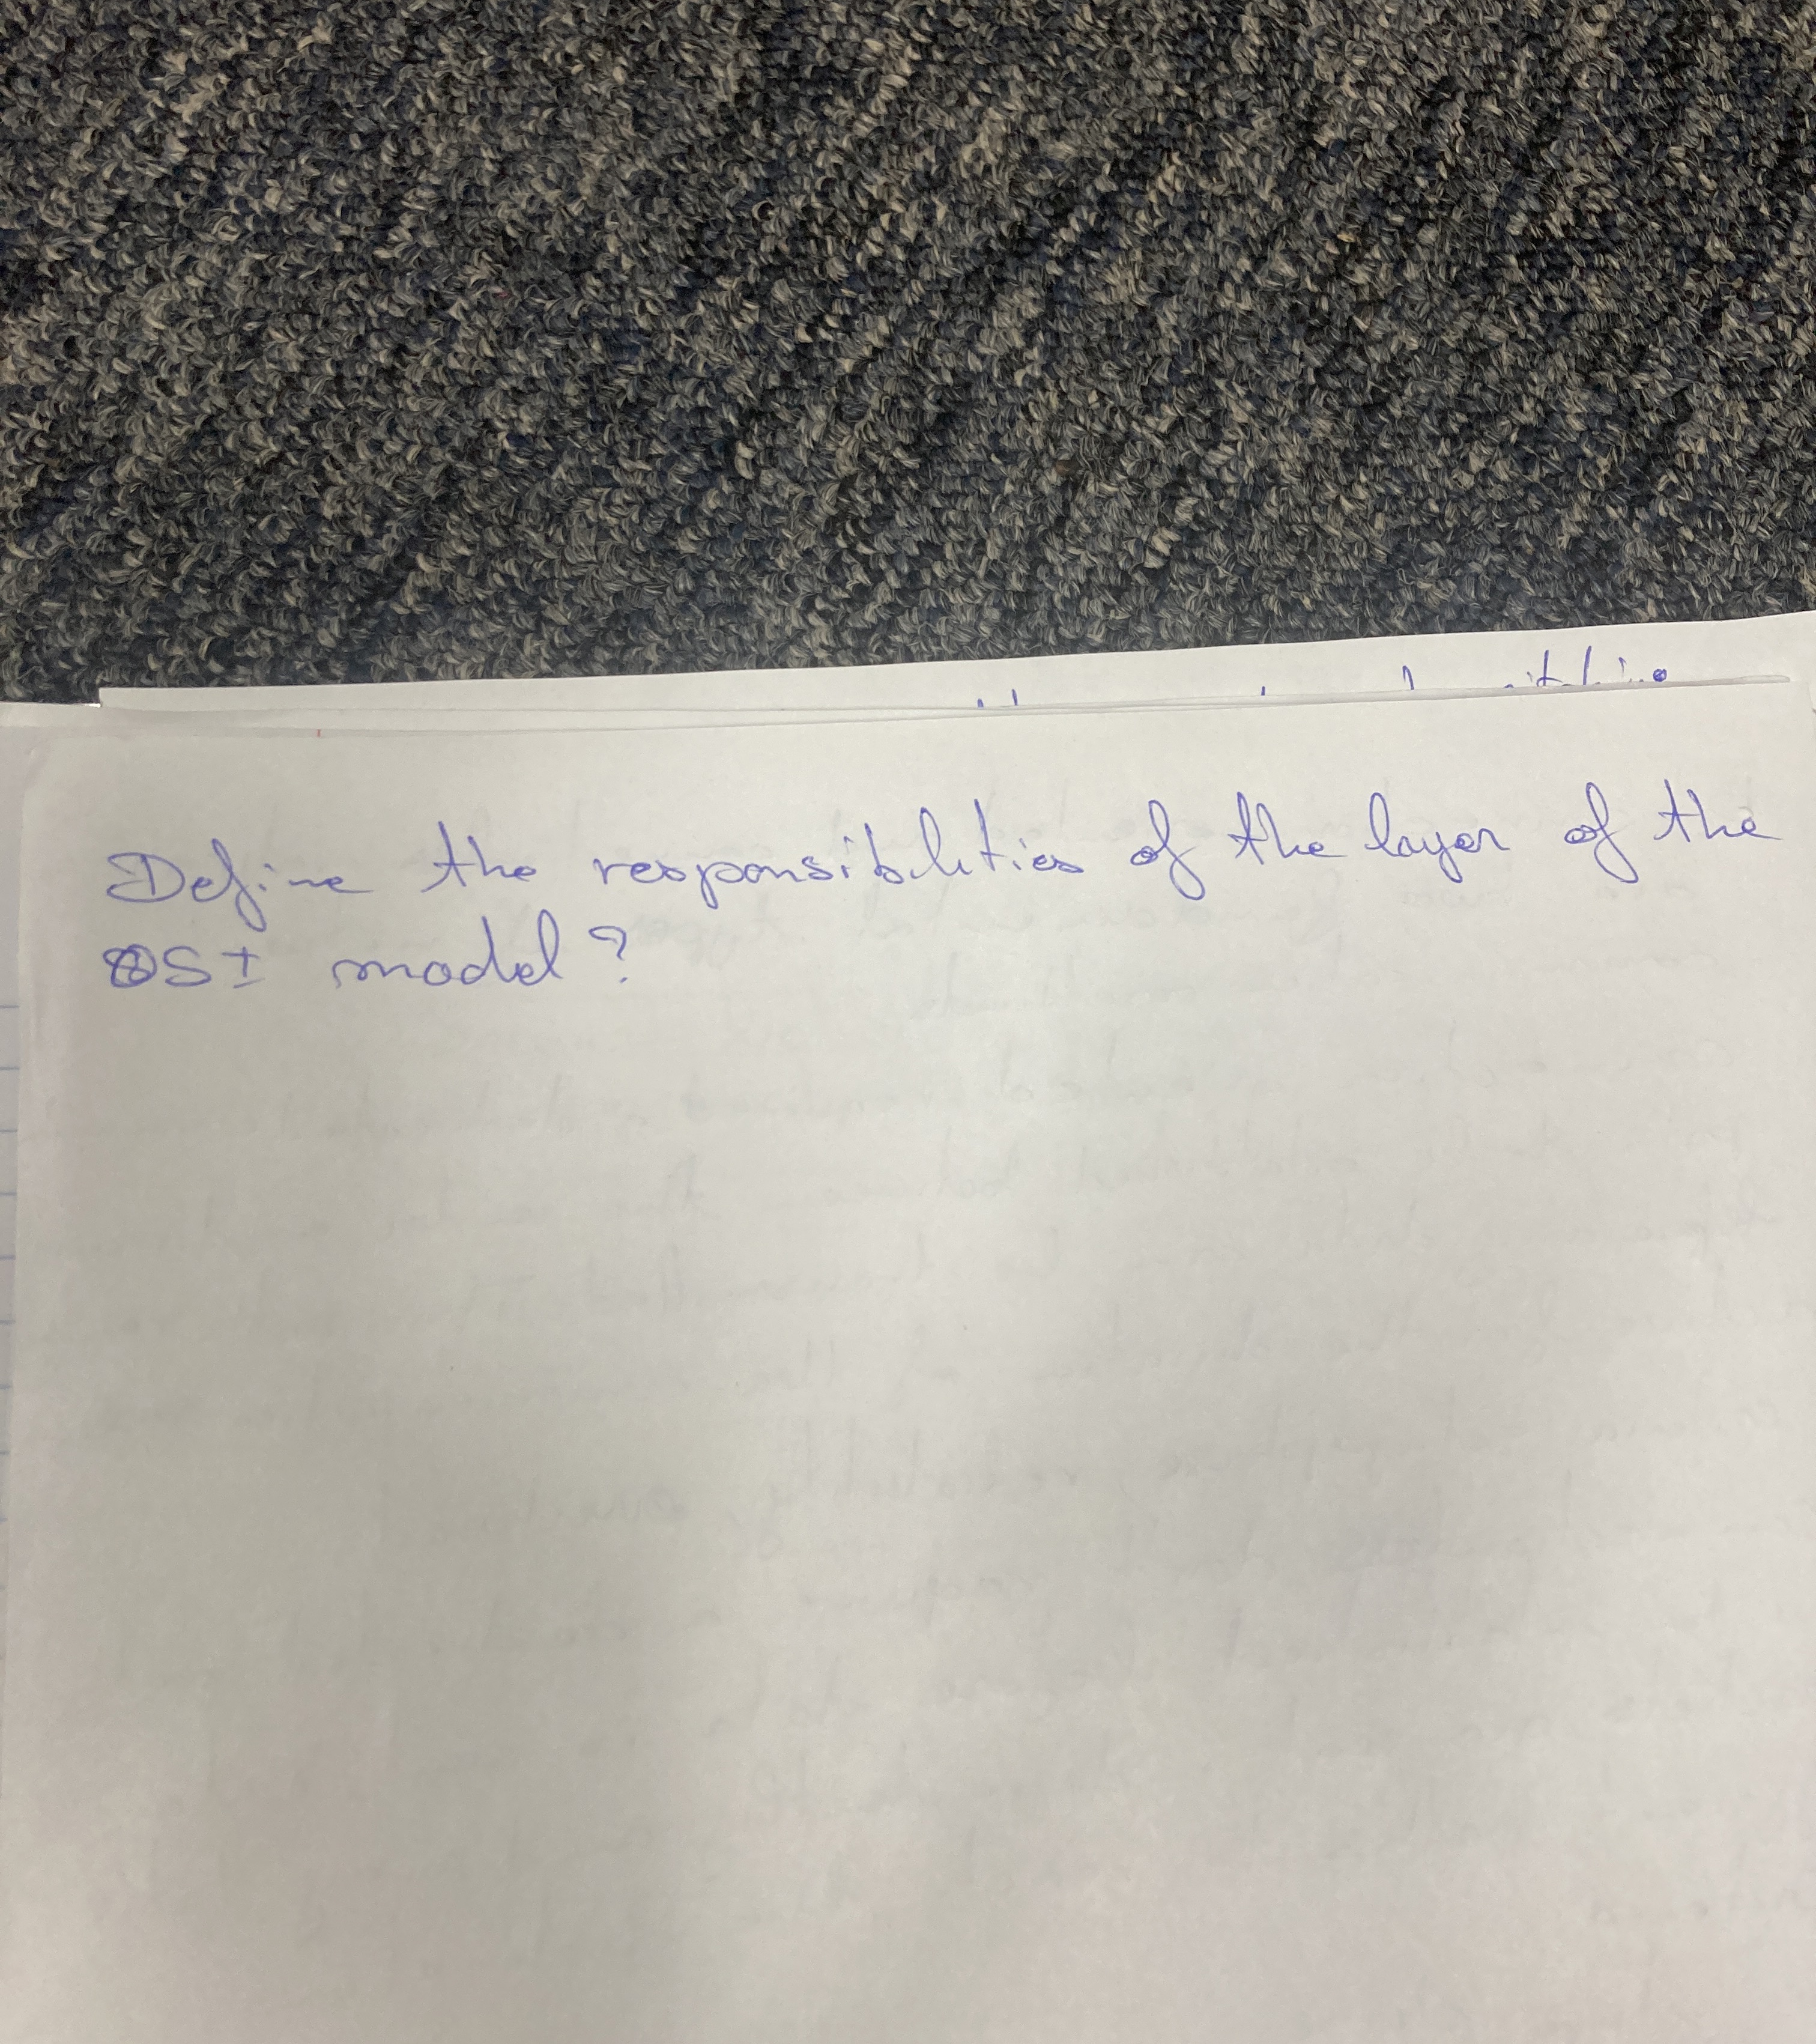 Define the responsibilities of the layer of the
OSI model?